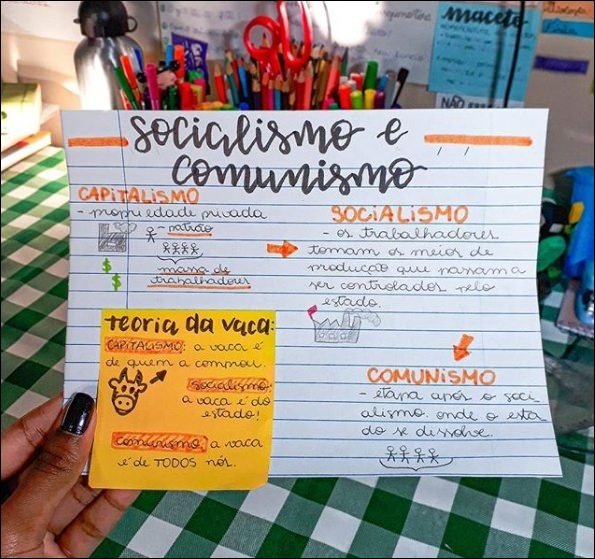 Maceto
NÃO ESQ
socialismo e
comunismo
CAPITALISMO
- propriedade privada
- patrão
massa de
trabalhadores
$
$
SOCIALISMO
- os trabalhadores
tomam os meios de
produção que passam a
ser controlados pelo
estado.
COMUNISMO
- etapa após o soci
alismo. onde o esta
do se dissolve.
teoria da vaca:
CAPITALISMO: a vaca é
de quem a comprou.
socialismo:
a vaca é do
estado!
comunismo: a vaca
é de TODOS nós.